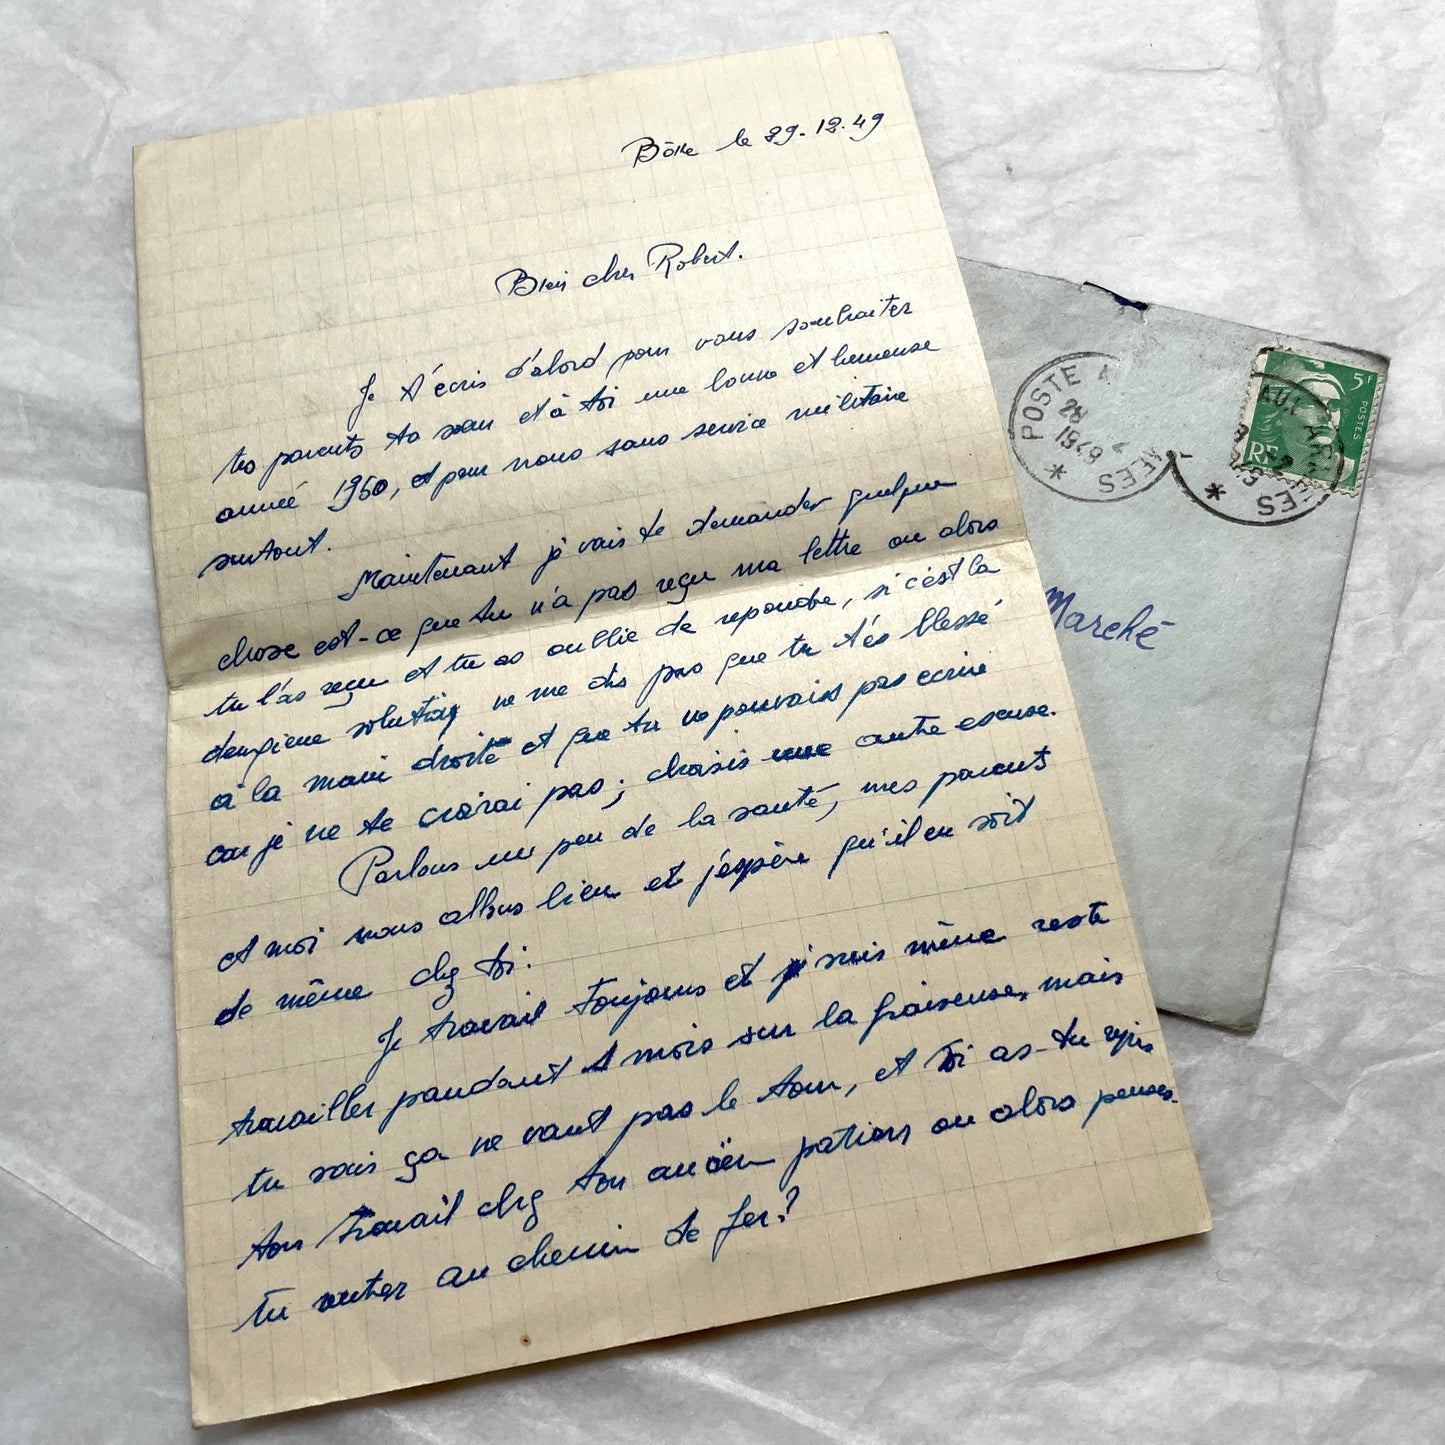 le 29-12-49
Bien cher Robert.
Je t'écris d'abord pour vous souhaiter
tes parents ta sœur et à toi une bonne et heureuse
année 1950, et pour nous sans service militaire
surtout.
Maintenant je vais te demander quelque
chose est-ce que tu n'a pas reçu ma lettre ou alors
tu l'as reçu et tu as oublie de repondre, si c'est la
deuxieme solution ne me dis pas que tu t'és blessé
a la main droite et que tu ne pouvais pas ecrire
car je ne te croirai pas; choisis une autre excuse.
Parlons un peu de la santé, mes parents
et moi nous allons bien et j'espère qu'il en soit
de même chez toi.
Je travail toujours et je suis même reste
travailler pendant 1 mois sur la fraiseuse, mais
tu sais ça ne vaut pas le tour, et toi as-tu repis
ton travail chez ton ancien patron ou alors penses-
tu rentrer au chemin de fer?
POSTE AUX ARMÉES
28
1949
5F
POSTES
RF
Marché